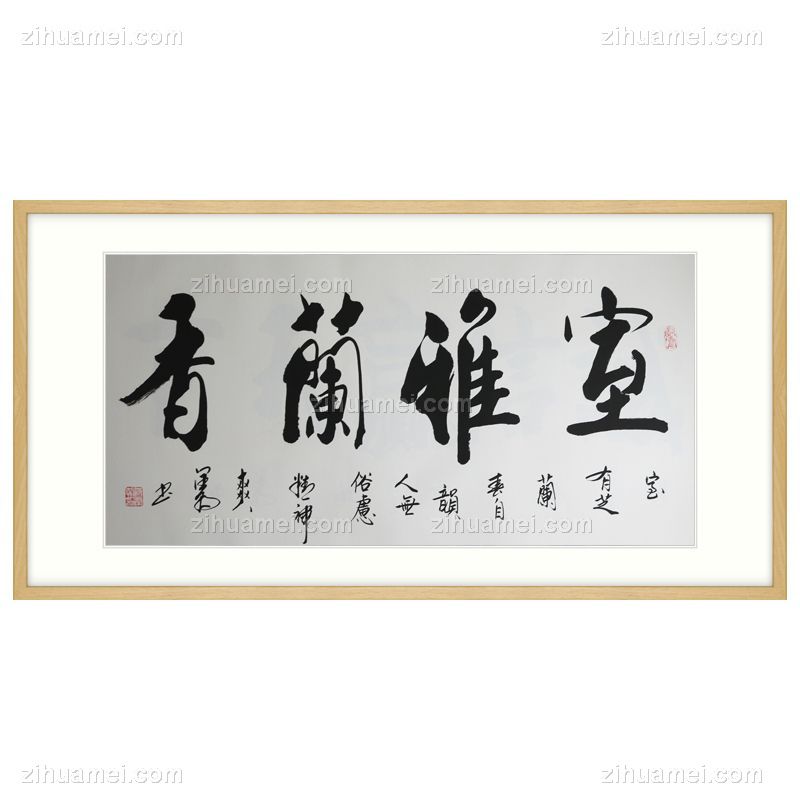 zihuamei.com zihuamei.com
zihuamei.com zihuamei.com
室雅蘭香
zihuamei.com
室有芝蘭春自韻人無俗慮精神爽
书
zihuamei.com
zihuamei.com zihuamei.com